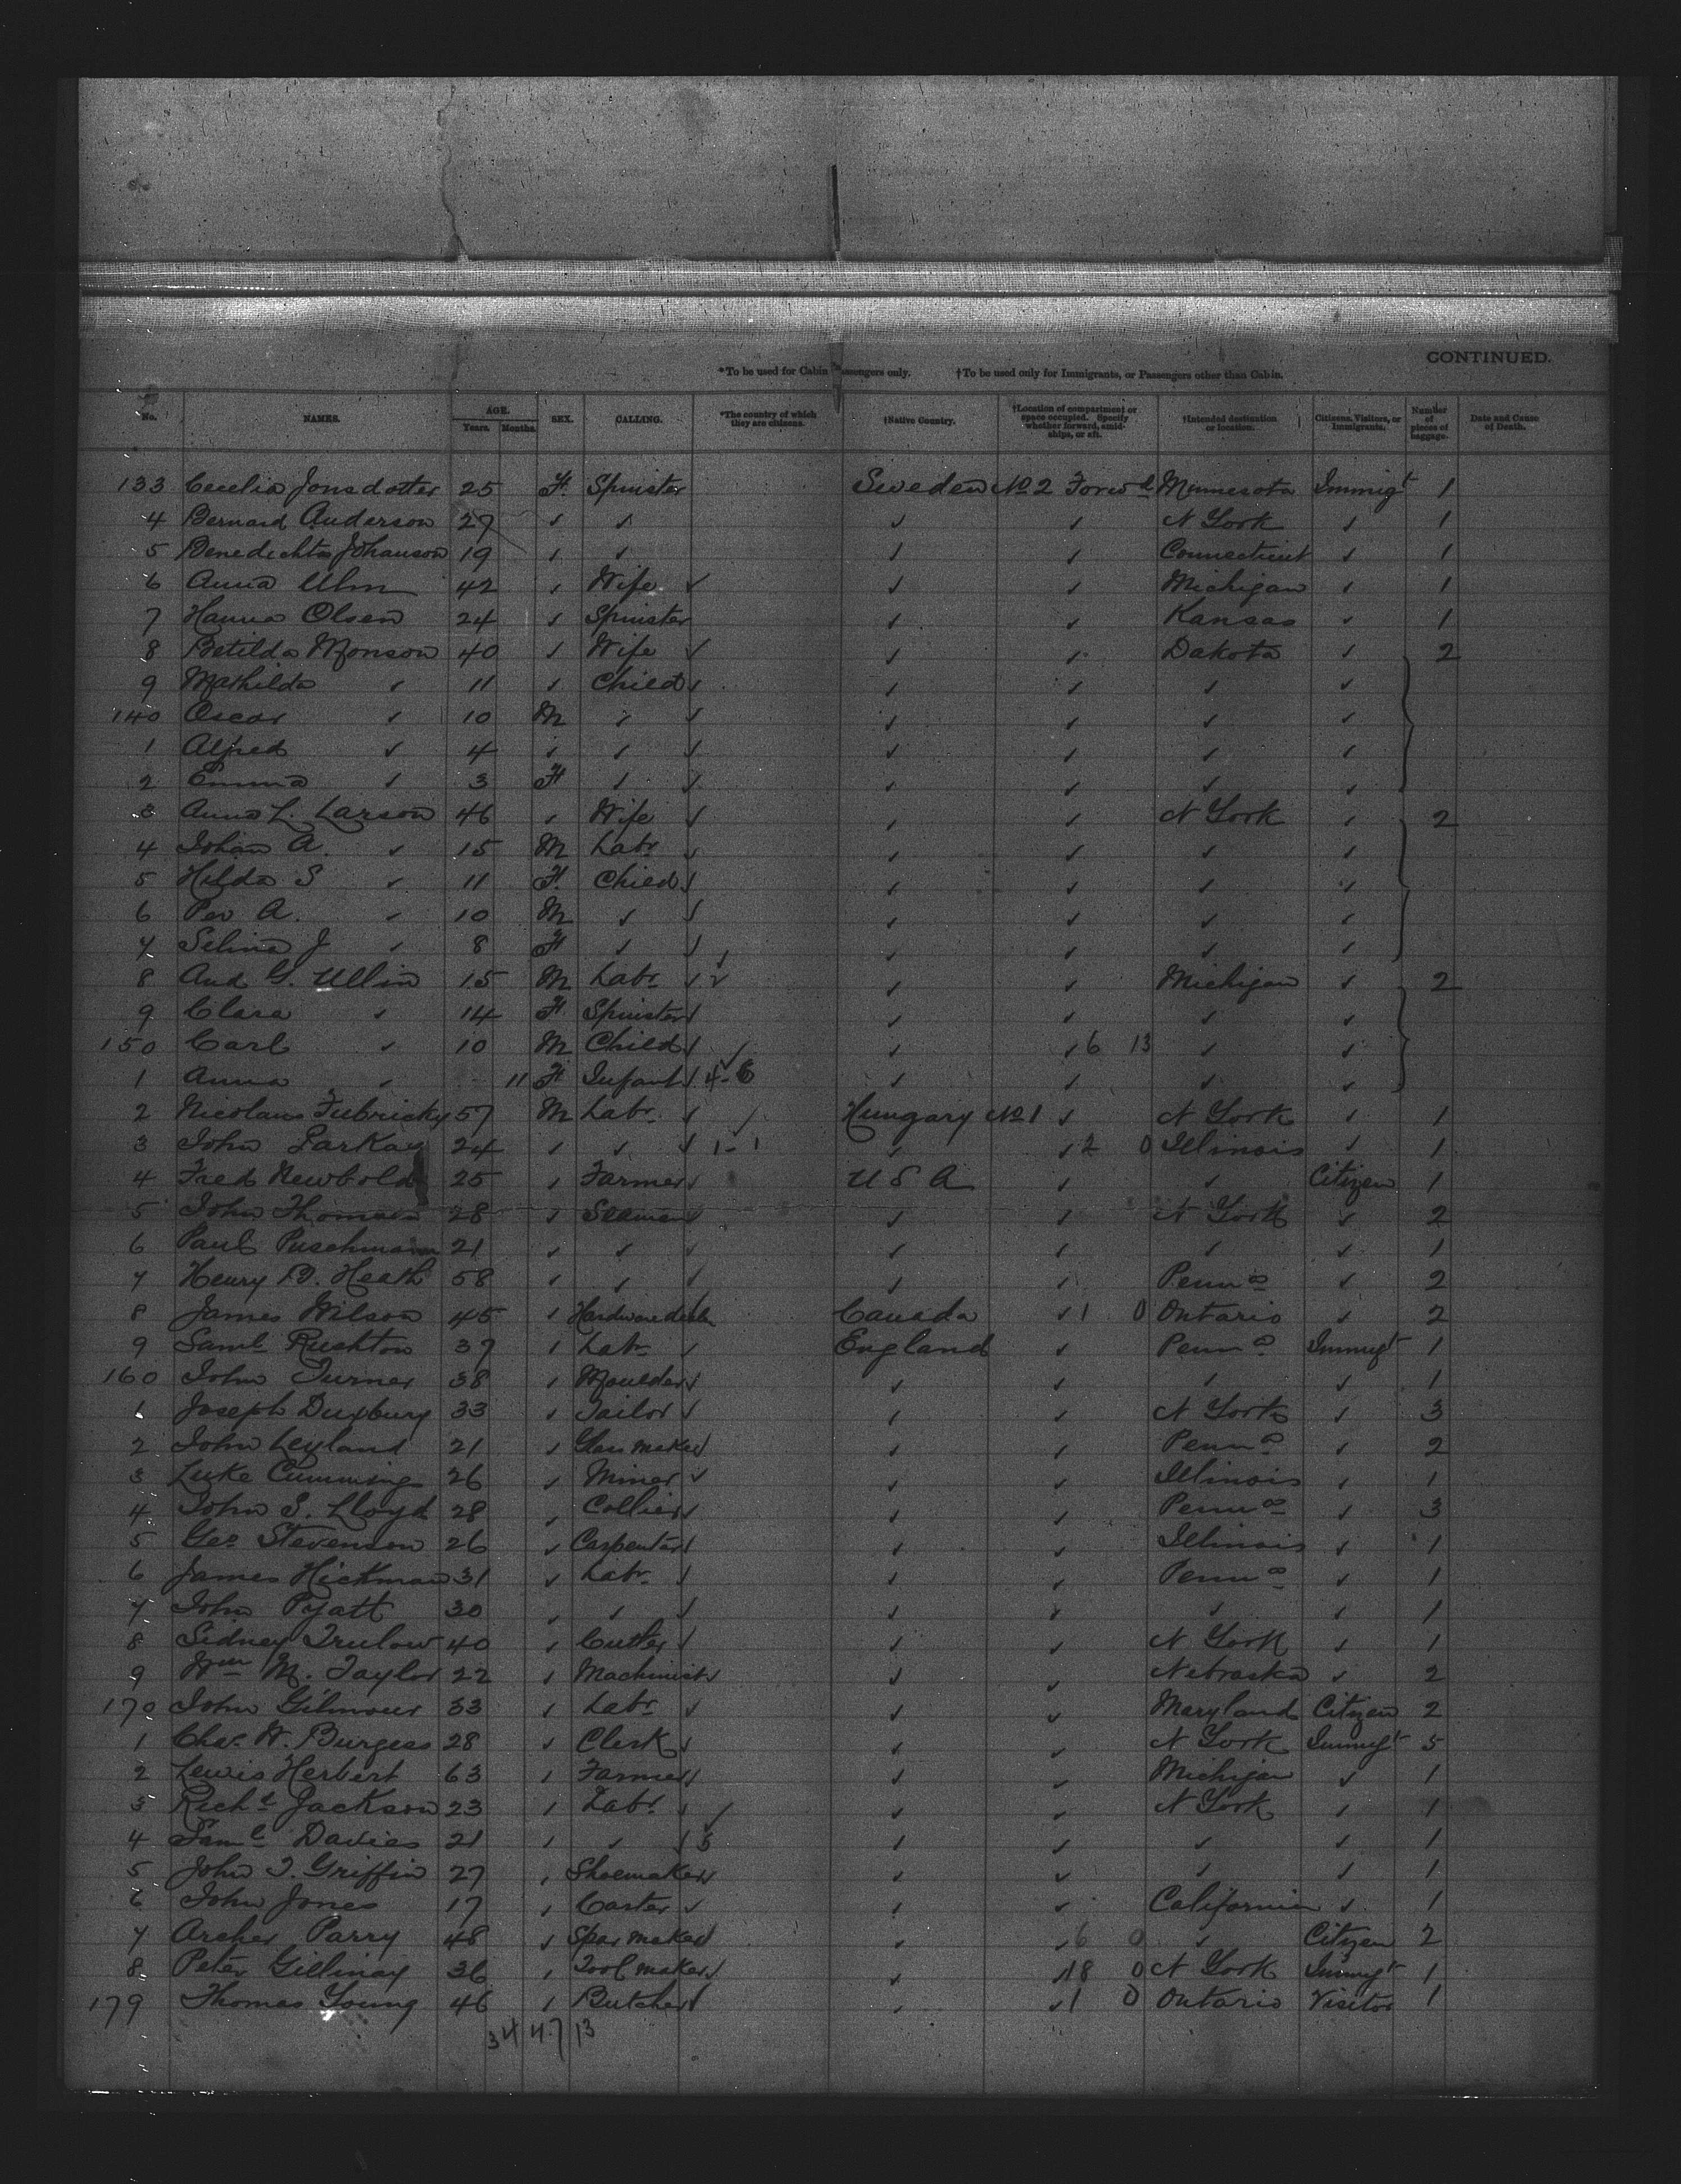 CONTINUED.
*To be used for Cabin Passengers only. †To be used only for Immigrants, or Passengers other than Cabin.
No. NAMES. AGE. Years. Months. SEX. CALLING. *The country of which they are citizens. †Native Country. †Location of compartment or space occupied. Specify whether forward, amidships, or aft. †Intended destination or location. Citizens, Visitors, or Immigrants. Number of pieces of baggage. Date and Cause of Death.
133 Cecelia Jonsdotter 25 F. Spinster Sweden No 2 Forwd Minnesota Immigt 1
4 Bernard Anderson 27 ✓ ✓ ✓ ✓ N York ✓ 1
5 Benedichta Johanson 19 ✓ ✓ ✓ ✓ Connecticut ✓ 1
6 Anna Ulm 42 ✓ Wife ✓ ✓ ✓ Michigan ✓ 1
7 Hanna Olsen 24 ✓ Spinster ✓ ✓ Kansas ✓ 1
8 Betilda Monson 40 ✓ Wife ✓ ✓ ✓ Dakota ✓ 2
9 Mathilda ✓ 11 ✓ Child ✓ ✓ ✓ ✓ ✓
140 Oscar ✓ 10 M ✓ ✓ ✓ ✓ ✓ ✓
1 Alfred ✓ 4 ✓ ✓ ✓ ✓ ✓ ✓ ✓
2 Emma ✓ 3 F ✓ ✓ ✓ ✓ ✓ ✓
3 Anna L. Larson 46 ✓ Wife ✓ ✓ ✓ N York ✓ 2
4 Johan A. ✓ 15 M Labr ✓ ✓ ✓ ✓ ✓
5 Hilda S ✓ 11 F. Child ✓ ✓ ✓ ✓ ✓
6 Per A. ✓ 10 M ✓ ✓ ✓ ✓ ✓ ✓
7 Selina J ✓ 8 F ✓ ✓ ✓ ✓ ✓ ✓
8 And G. Ullin 15 M Labr ✓ ✓ ✓ ✓ Michigan ✓ 2
9 Clara ✓ 14 F Spinster ✓ ✓ ✓ ✓ ✓
150 Carl ✓ 10 M Child ✓ ✓ ✓ 6 13 ✓ ✓
1 Anna ✓ 11 F Infant ✓ 4-6 ✓ ✓ ✓ ✓
2 Nicolaus Fubricky 57 M Labr ✓ ✓ Hungary No 1 ✓ N York ✓ 1
3 John Larkay 24 ✓ ✓ ✓ 1-1 ✓ ✓ 2 0 Illinois ✓ 1
4 Fred Newbold 25 ✓ Farmer ✓ U S A ✓ ✓ Citizen 1
5 John Thomsen 28 ✓ Seaman ✓ ✓ ✓ N York ✓ 2
6 Paul Puschmann 21 ✓ ✓ ✓ ✓ ✓ ✓ ✓ 1
7 Henry D. Heath 58 ✓ ✓ ✓ ✓ ✓ Penna ✓ 2
8 James Wilson 45 ✓ Hardware dealer Canada ✓ 1 0 Ontario ✓ 2
9 Saml Rushton 37 ✓ Labr ✓ England ✓ Penna Immigt 1
160 John Turner 38 ✓ Moulder ✓ ✓ ✓ ✓ ✓ 1
1 Joseph Duxbury 33 ✓ Tailor ✓ ✓ ✓ N York ✓ 3
2 John Leyland 21 ✓ Glass maker ✓ ✓ ✓ Penna ✓ 2
3 Luke Cummings 26 ✓ Miner ✓ ✓ ✓ Illinois ✓ 1
4 John S. Lloyd 28 ✓ Collier ✓ ✓ ✓ Penna ✓ 3
5 Geo Stevenson 26 ✓ Carpenter ✓ ✓ ✓ Illinois ✓ 1
6 James Hickman 31 ✓ Labr ✓ ✓ ✓ Penna ✓ 1
7 John Pyatt 30 ✓ ✓ ✓ ✓ ✓ ✓ ✓ 1
8 Sidney Trulow 40 ✓ Cutler ✓ ✓ ✓ N York ✓ 1
9 Wm M. Taylor 22 ✓ Machinist ✓ ✓ ✓ Nebraska ✓ 2
170 John Gilmour 33 ✓ Labr ✓ ✓ ✓ Maryland Citizen 2
1 Chas W. Burgess 28 ✓ Clerk ✓ ✓ ✓ N York Immigt 5
2 Lewis Herbert 63 ✓ Farmer ✓ ✓ ✓ Michigan ✓ 1
3 Richd Jackson 23 ✓ Labr ✓ ✓ ✓ ✓ N York ✓ 1
4 Saml Davies 21 ✓ ✓ ✓ 5 ✓ ✓ ✓ ✓ 1
5 John T. Griffin 27 ✓ Shoemaker ✓ ✓ ✓ ✓ ✓ 1
6 John Jones 17 ✓ Caster ✓ ✓ ✓ California ✓ 1
7 Archer Parry 48 ✓ Spar maker ✓ ✓ ✓ 6 0 ✓ Citizen 2
8 Peter Gillinay 36 ✓ Tool maker ✓ ✓ ✓ 18 0 N York Immigt 1
179 Thomas Young 46 ✓ Butcher ✓ ✓ ✓ 1 0 Ontario Visitor 1
34 47 13